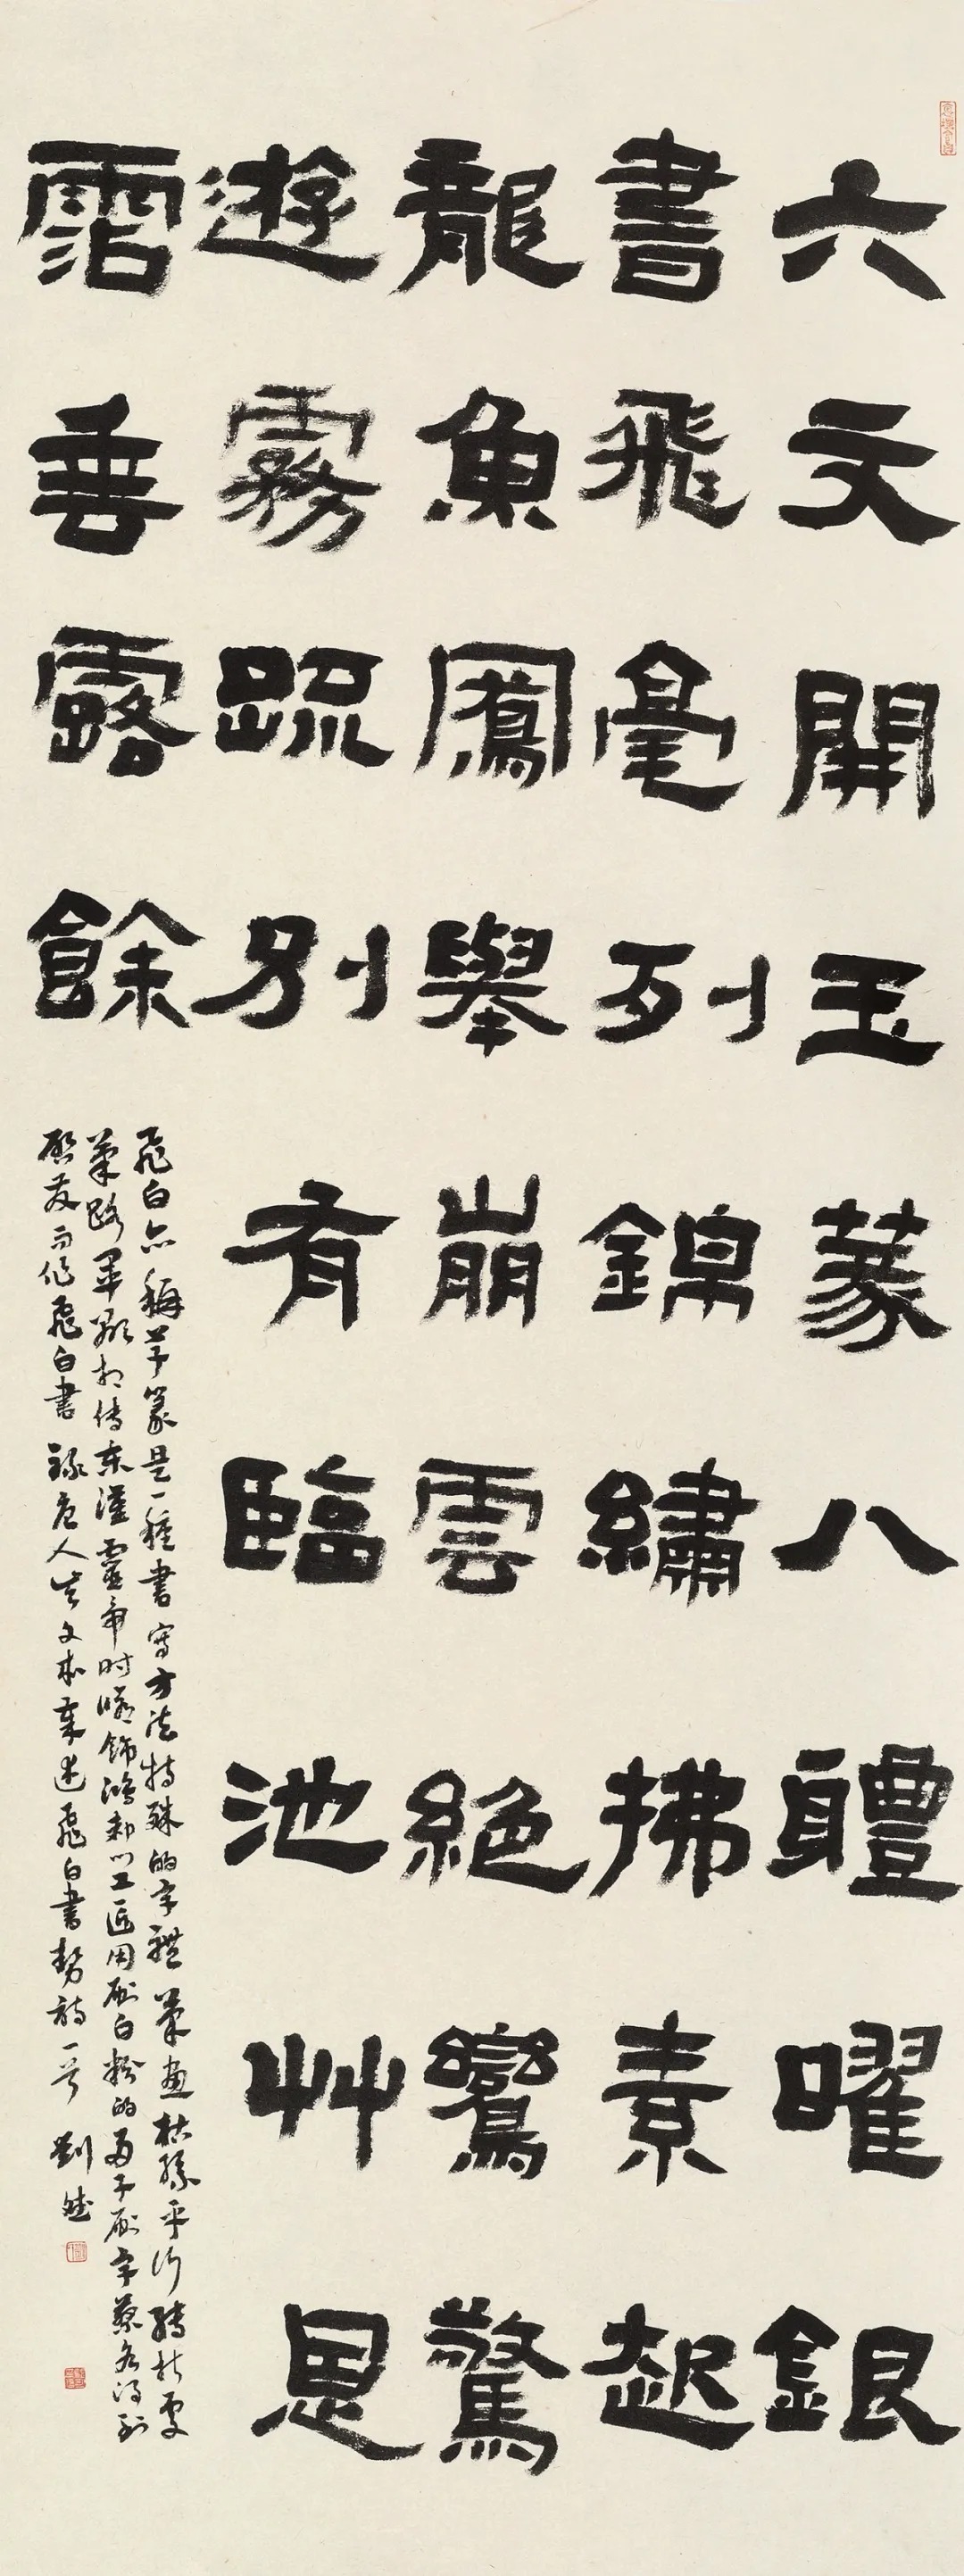 六文開玉篆八體曜銀
書飛毫列錦繡拂素起
龍魚鳳舉崩雲絕鸞驚
遊霧疏別有臨池艸思
霑垂露餘
飛白亦稱草篆是一種書寫方法特殊的字體筆畫枯絲平行轉折處
筆路畢顯相传東漢靈帝时修飾鴻都门工匠用刷白粉的帚子刷字蔡邕得到
啟發而作飛白書 錄唐人岑文本奉述飛白書勢詩一首 劉